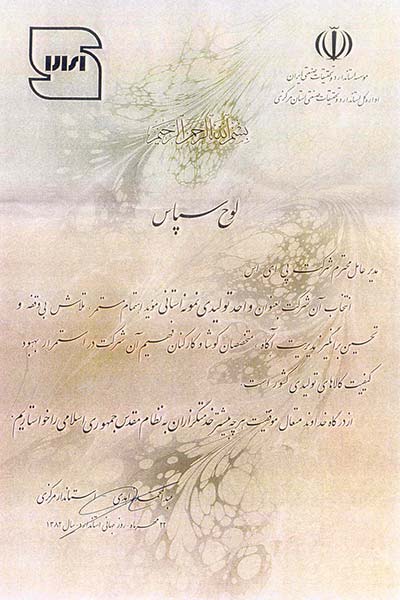 موسسه استاندارد و تحقیقات صنعتی ایران
اداره کل استاندارد و تحقیقات صنعتی استان مرکزی
بسم الله الرحمن الرحیم
لوح سپاس
مدیر عامل محترم شرکت پی ای اس
انتخاب آن شرکت بعنوان واحد تولیدی نمونه استانی مؤید اهتمام مستمر، تلاش بی وقفه و
تحسین برانگیز مدیریت آگاه، متخصصان کوشا و کارکنان فهیم آن شرکت در استمرار بهبود
کیفیت کالاهای تولیدی کشور است.
از درگاه خداوند متعال موفقیت هر چه بیشتر خدمتگزاران به نظام مقدس جمهوری اسلامی را خواستاریم.
استاندار مرکزی
۲۲ مهرماه روز جهانی استاندارد - سال ۱۳۸۲